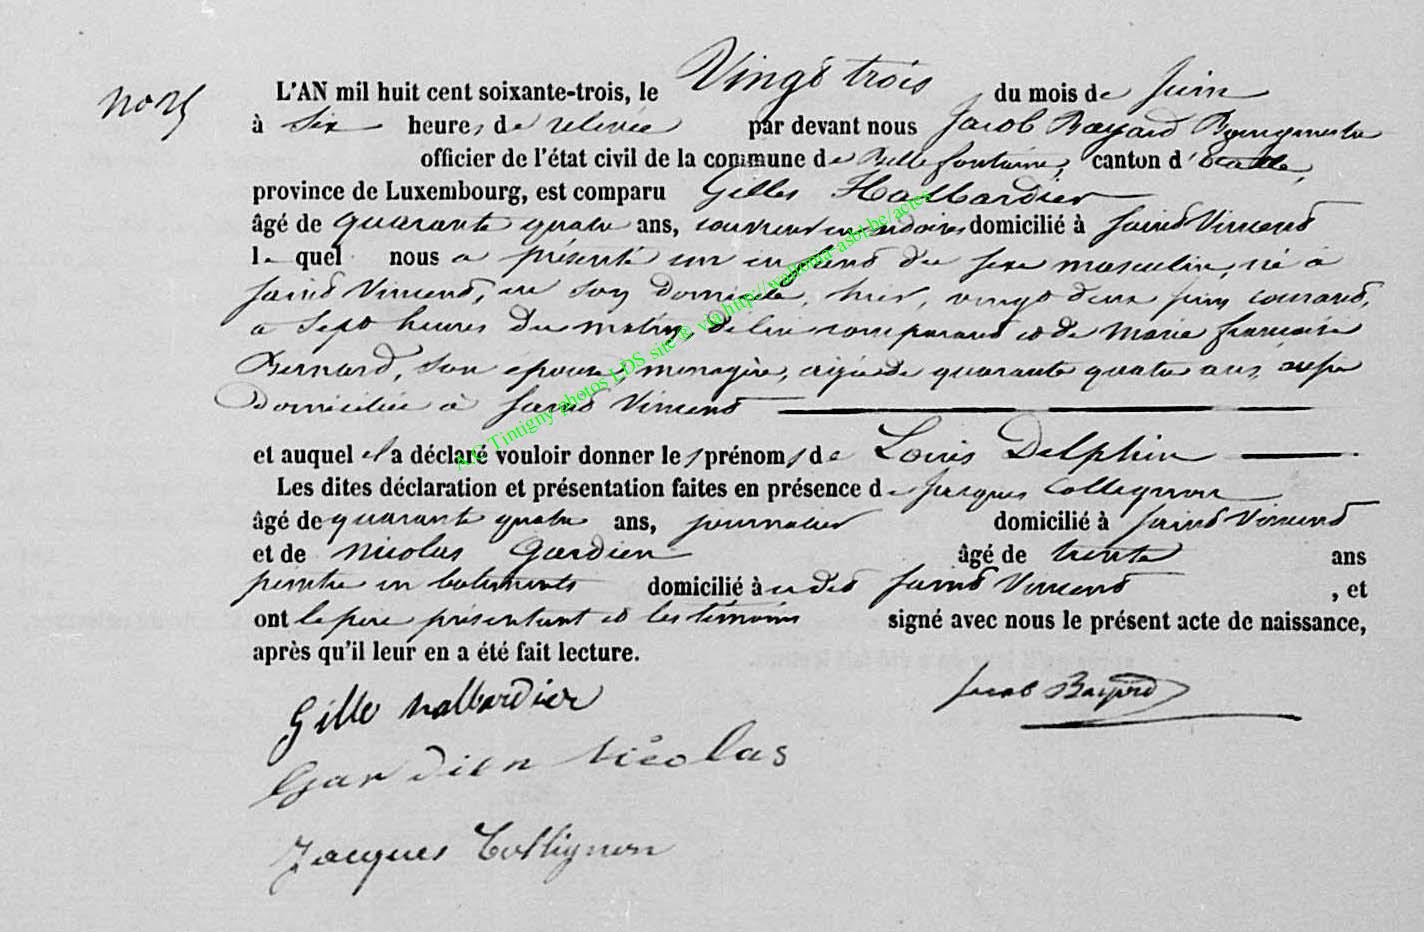 L'AN mil huit cent soixante-trois, le Vingt trois du mois de Juin
à six heures de relevée par devant nous Jacob Bayard Bourgmestre
officier de l'état civil de la commune de Bellefontaine, canton d'Etalle,
province de Luxembourg, est comparu Gilles Halbardier
âgé de quarante quatre ans, couvreur en ardoises domicilié à Saint Vincent
lequel nous a présenté un enfant du sexe masculin, né à
Saint Vincent, en son domicile, hier, vingt deux juin courant,
a sept heures du matin, de lui comparant et de Marie françoise
Bernard, son épouse, ménagère, agée de quarante quatre ans, aussi
domiciliée à Saint Vincent
et auquel il a déclaré vouloir donner les prénoms de Louis Delphin
Les dites déclaration et présentation faites en présence de Jacques Collignon
âgé de quarante quatre ans, journalier domicilié à Saint Vincent
et de Nicolas Gardien âgé de trente ans
peintre en batiments domicilié à udit Saint Vincent, et
ont le père présentant et les témoins signé avec nous le présent acte de naissance,
après qu'il leur en a été fait lecture.
Gille halbardier
Jacob Bayard
Gardien Nicolas
Jacques Collignon
A.C Tintigny photos LDS site © via http://wallonia-asbl.be/actes